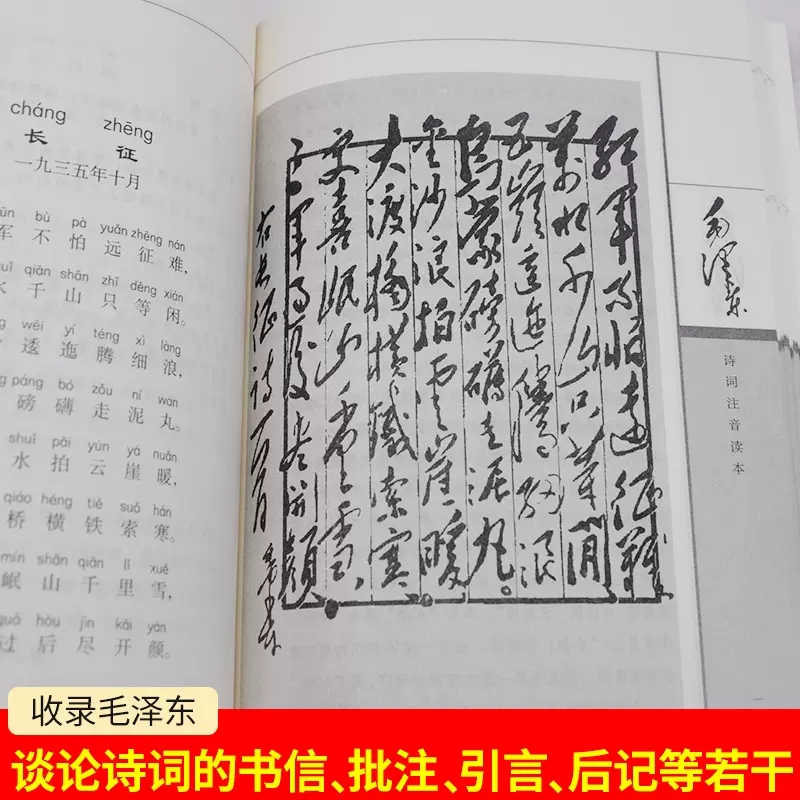 cháng zhēng
长 征
一九三五年十月
ūn bù pà yuǎn zhēng nán
军 不 怕 远 征 难,
uǐ qiān shān zhǐ děng xián
水 千 山 只 等 闲。
wēi yí téng xì làng
逶 迤 腾 细 浪,
g páng bó zǒu ní wán
磅 礴 走 泥 丸。
shuǐ pāi yún yá nuǎn
水 拍 云 崖 暖,
qiáo héng tiě suǒ hán
桥 横 铁 索 寒。
mín shān qiān lǐ xuě
岷 山 千 里 雪,
guò hòu jìn kāi yán
过 后 尽 开 颜。
红军不怕遠征難
萬水千山只等闲
五嶺逶迤腾细浪
烏蒙磅礴走泥丸。
金沙浪拍雲崖暖
大渡橋横鐵索寒
更喜岷山千里雪
三军过後尽开颜
右长征诗一首
毛泽东
毛泽东
诗词注音读本
收录毛泽东
谈论诗词的书信、批注、引言、后记等若干